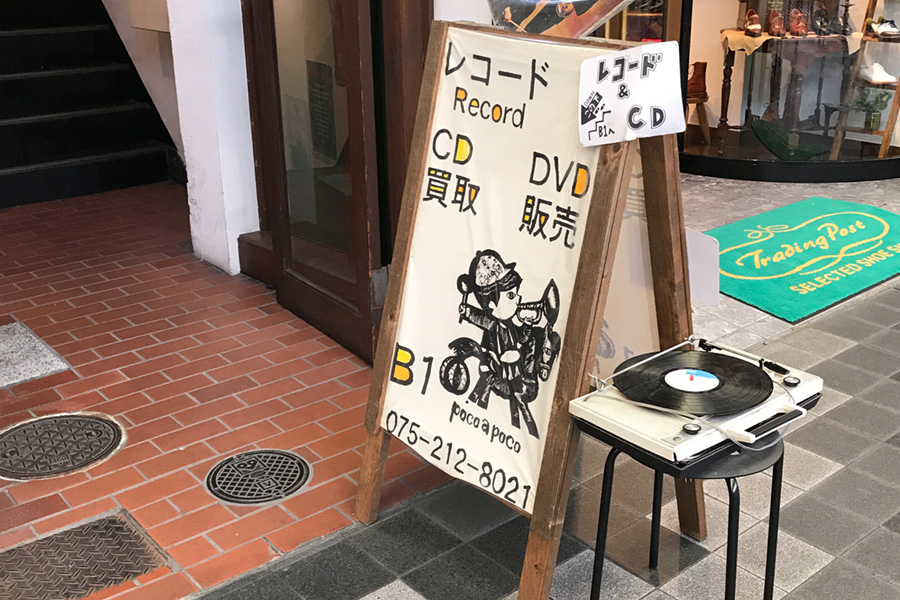 レコード
Record
CD
買取
DVD
販売
B1
poco a poco
075-212-8021
レコード
&
CD
B1へ
Trading Post
SELECTED SHOE